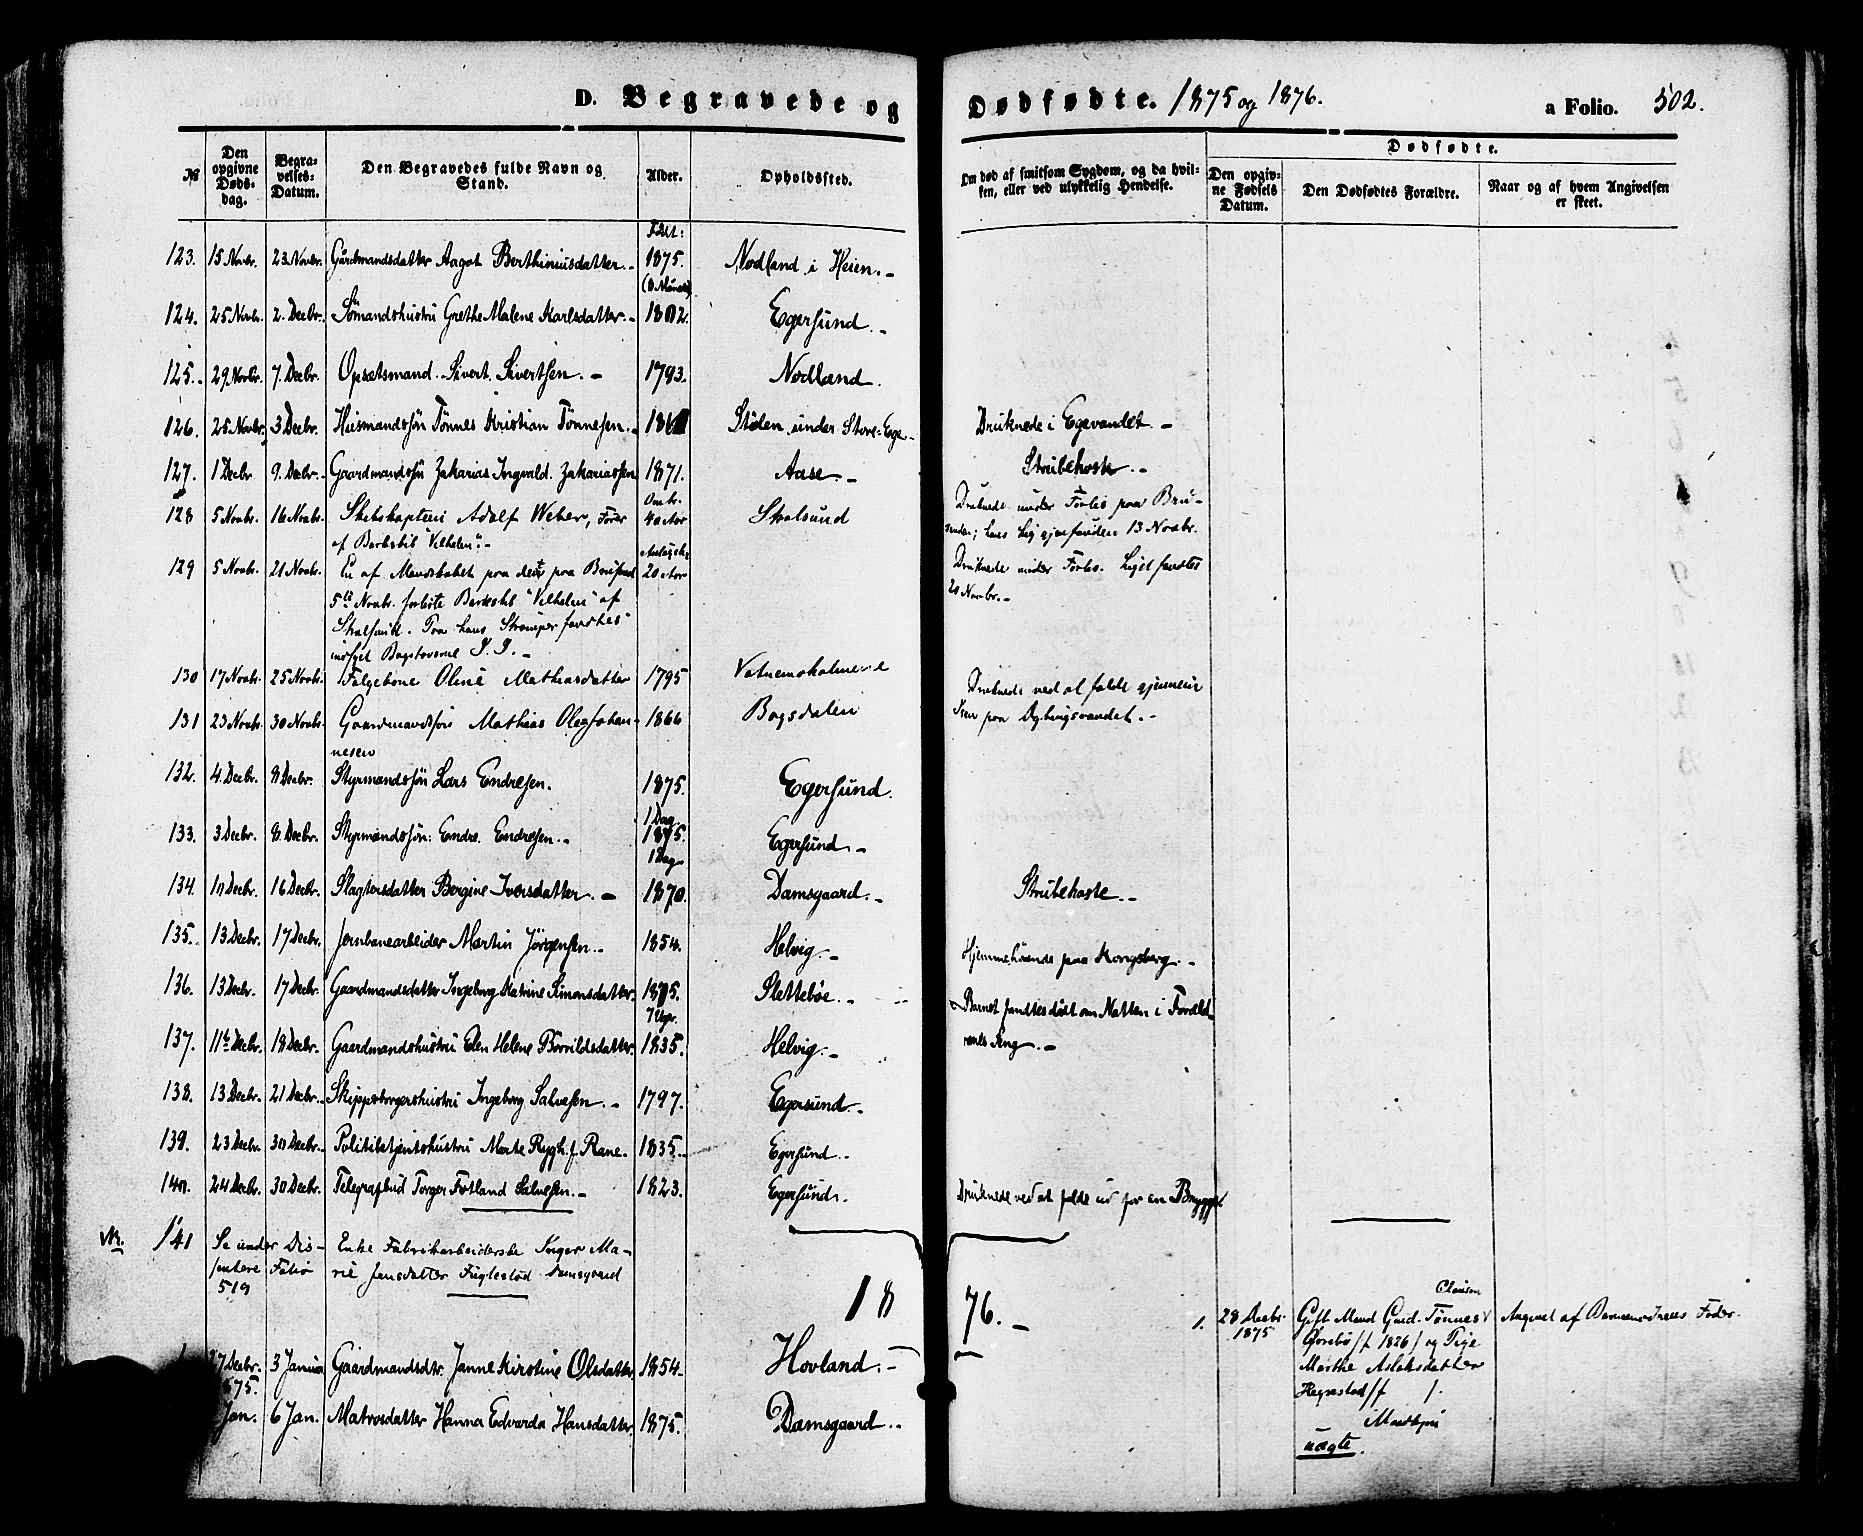 D. Begravede og Dødfødte. 1875 og 1876. a Folio. 502.
№ Den opgivne Døds-dag. Begra-velses-Datum. Den Begravedes fulde Navn og Stand. Alder. Opholdssted. Om død af smitsom Sygdom, og da hvil-ken, eller ved ulykkelig Hendelse. Dødfødte.
Den opgiv-ne Fødsels Datum. Den Dødfødtes Forældre. Naar og af hvem Angivelsen er skeet.
Født:
123. 15 Novbr. 23 Novbr. Gårdmandsdatter Aagot Berthiniusdatter. 1875. Nodland i Heien.
124. 25 Novbr. 2. Decbr. Sømandshustru Grethe Malene Karlsdatter. 1802. Egersund.
125. 29 Novbr. 7. Decbr. Opsatsmand Sivert Sivertsen. 1793. Nodland.
126. 25 Novbr. 3 Decbr. Husmandssøn Tønnes Kristian Tønnesen. Støden under Store-Ege Druknede i Egevandet.
127. 1 Decbr. 9. Decbr. Gaardmandssøn Zakarias Ingvald Zakariassen 1871. Aase. Strubehoste.
128 5 Novbr. 16 Novbr. Skibskaptein Adolf Weber, Fører Omtr. 40 Aar Stralsund Druknede under Forlis paa Bru-
af Barkskib "Vilhelm". hans Lig gjenfunden 13 Novbr.
129 5 Novbr. 21 Novbr. En af Mandskabet paa det paa 20 Aar Druknede under Forlis. Liget fandtes
5te Novbr. forliste Barkskib "Vilhelm" af 20 Novbr.
Stralsund. Paa hans Strømper fandtes
indsyet Bogstaverne I. I.
130 17 Novbr. 25 Novbr. Oline Mathiasdatter 1795 Vatnemsholmene
131 23 Novbr. 30 Novbr. Gaardmandssøn Mathias Oleas Johan- 1866 Bogsdalen Druknede ved at falde gjennem
nesen Isen paa
132. 4. Decbr. 8 Decbr. Styrmandssøn Lars Endresen. 1875. 1 Dag Egersund.
133. 3. Decbr. 8. Decbr. Styrmandssøn: Endre Endresen. 1875. 1 Dag Egersund.
134. 10 Decbr. 16 Decbr. Slagtersdatter Bergine Iversdatter. 1870. Damsgaard. Strubehoste.
135. 13 Decbr. 17 Decbr. Jernbanearbeider Martin Jörgensen. 1854. Helvig. Hjemmehørende paa Kongsberg.
136. 13 Decbr. 17 Decbr. Gaardmandsdatter Ingeborg Katrine Simonsdatter. 1875. 7 Uger. Slettebøe. Barnet fandtes dødt om Natten i Foræld-
137. 11te Decbr. 18 Decbr. Gaardmandshustru Elen Helene Børrildsdatter. 1835. Helvig. renes Seng.
138. 13 Decbr. 21 Decbr. Skipperborgershustru Ingeborg Salvesen. 1797. Egersund.
139. 23 Decbr. 30 Decbr. Politibetjentshustru Marte Rygh f. Rane. 1835. Egersund.
140. 24 Decbr. 30 Decbr. Telegrafbud Torger Fotland Salvesen. 1823. Egersund. Druknede ved at falde ud for en Brygge.
Nr. 141 Se under Dis- Enke Fabrikarbeiderske Inger Ma-
sentere Folio rie Jensdatter Fuglestad Damsgaard
519
1876.
1. 28 Decbr. 1875 Gift Mand Gaard. Tønnes Clausen
Ørsebø /f 1826/ og Pige Angivet af Barnemoderens Fader.
Marthe Aslaksdatter
Hegrestad /f /.
uægte.
27 Decbr. 1875. 3 Januar Gaardmandsdtr. Janne Kirstine Olsdatter 1854. Hovland.
Jan. 6 Jan. Matrosdatter Hanna Edvarda Hansdatter. 1875. Damsgaard.